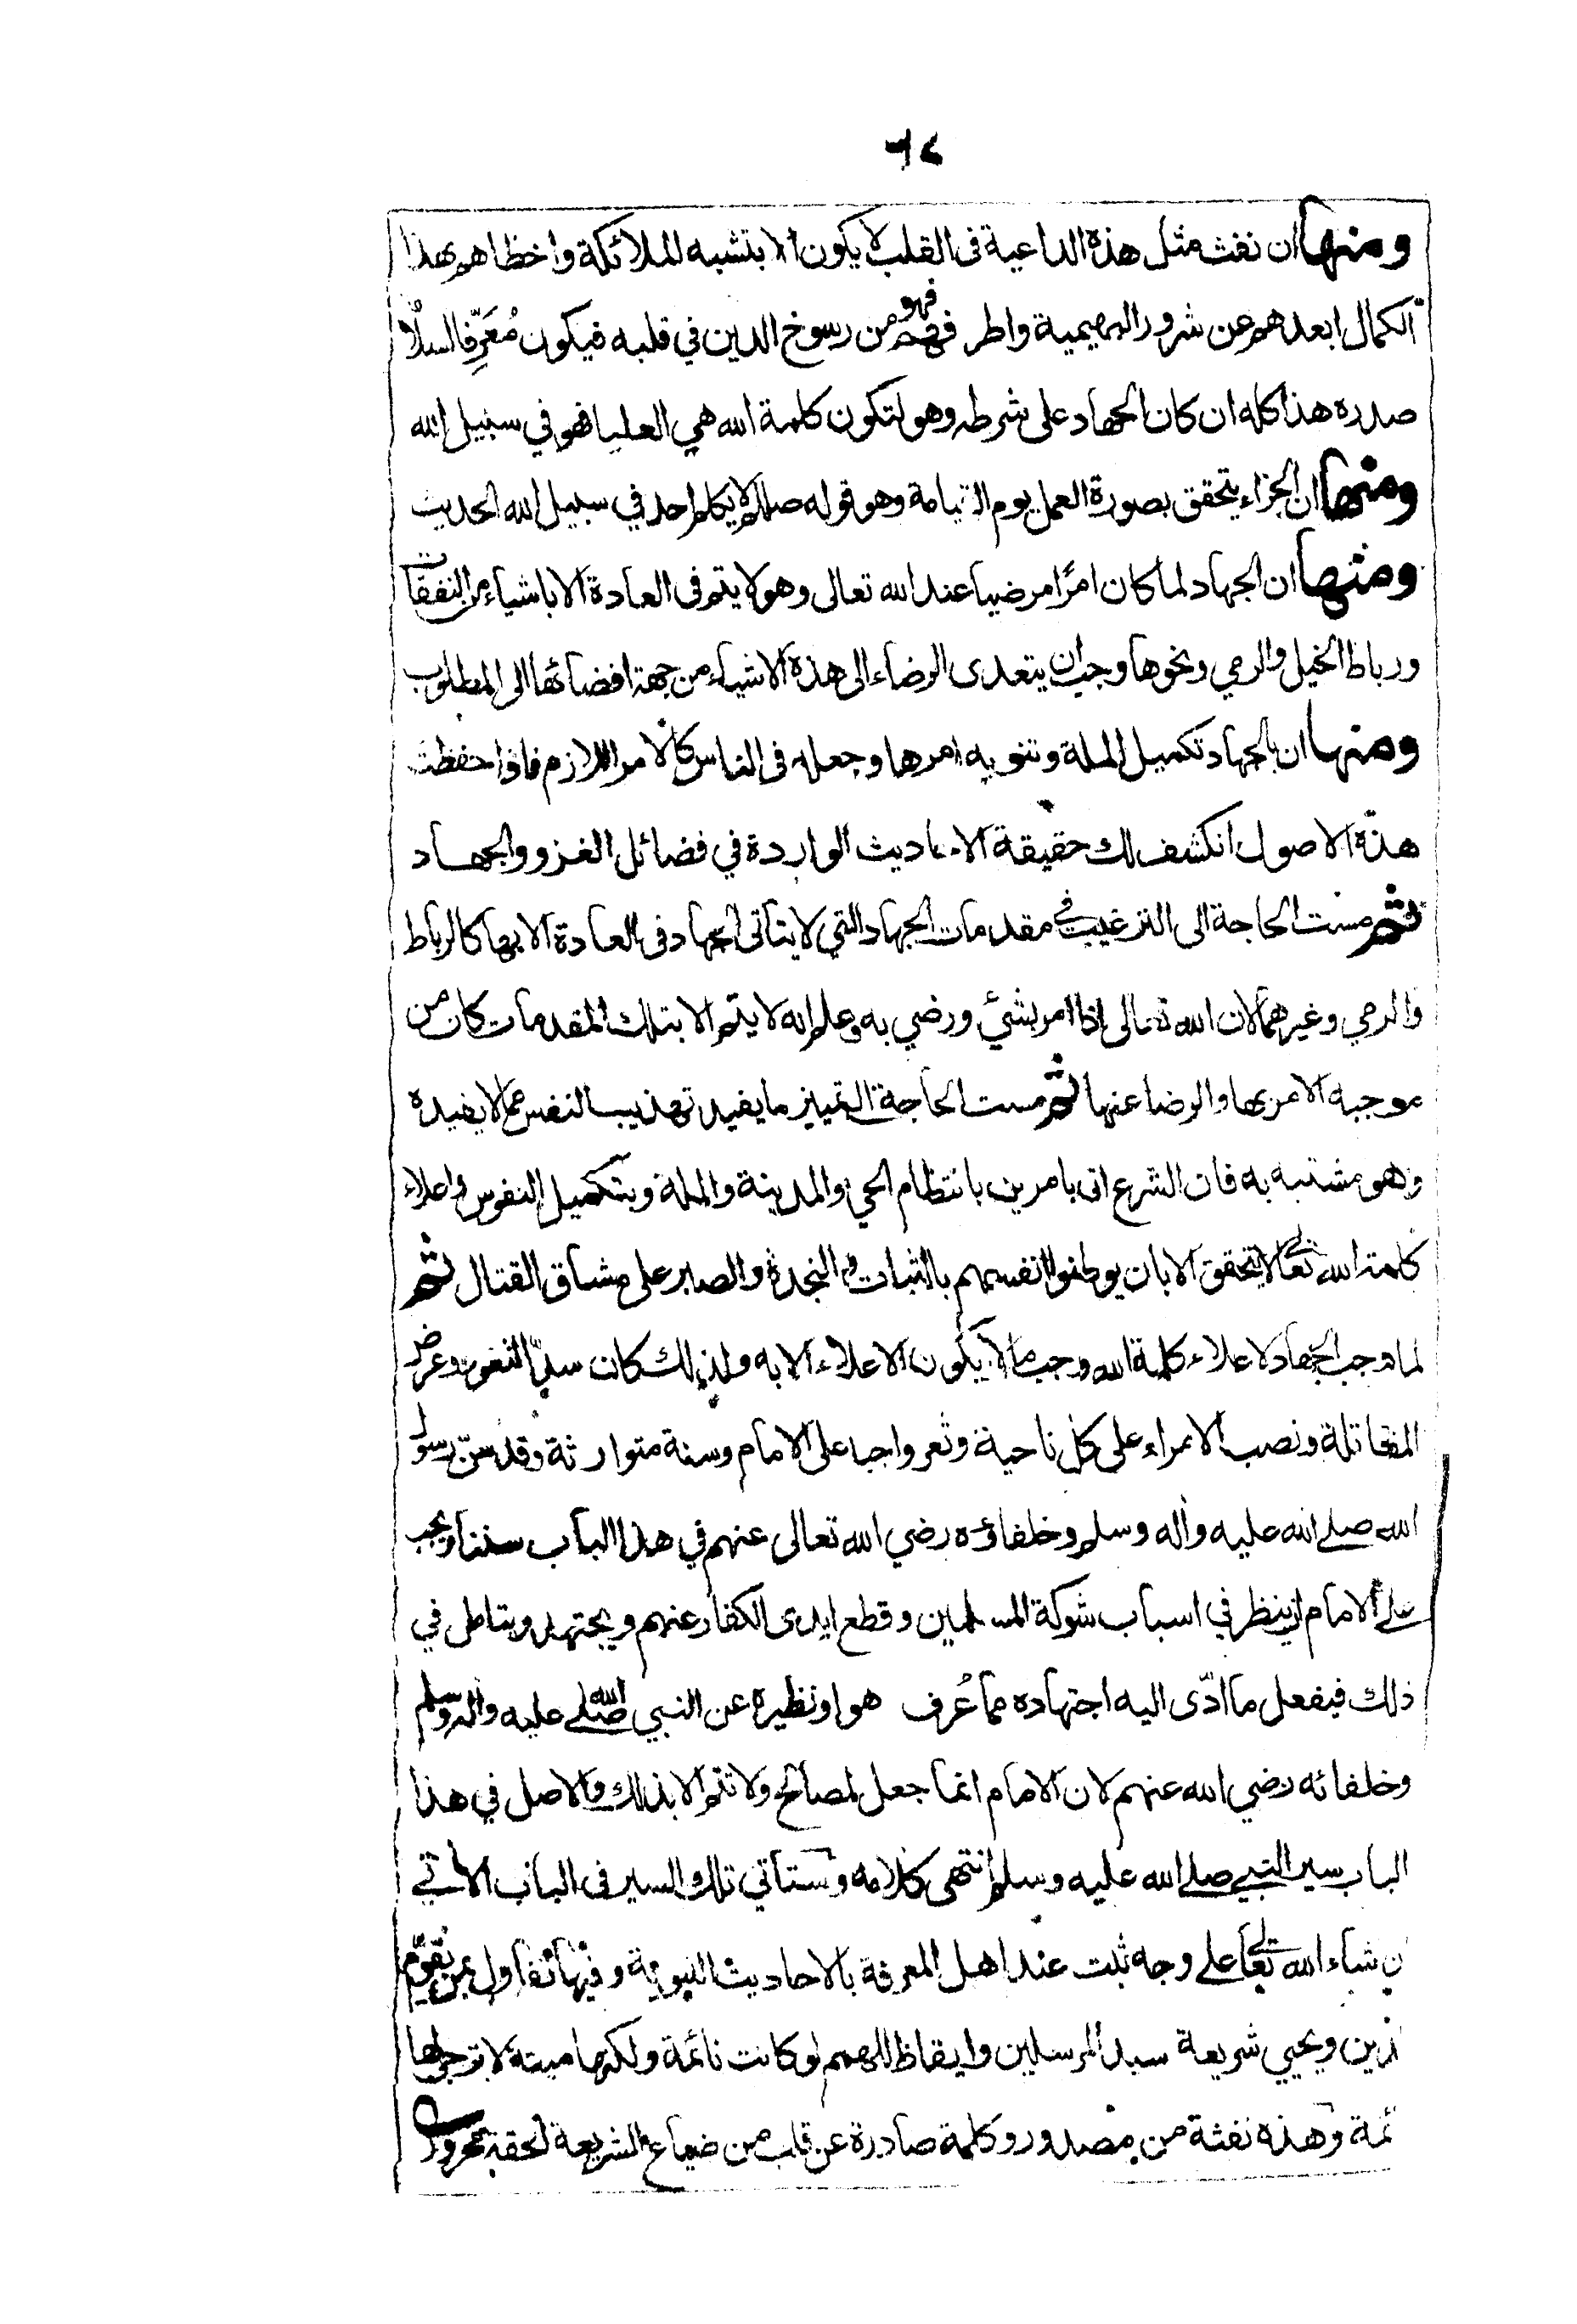 ٦٤
ومنها ان نفث مثل هذه الداعية فى القلب لا يكون الا بتشبه الملائكة واخظاهم بهذا
الكمال ابعدهم عن شرور البهيمية واطرفهم فهو من رسوخ الدين في قلبه فيكون مُعَرِّفا لسلا
صدره هذا كله ان كان الجهاد على شرطه وهو لتكون كلمة الله هي العليا فهو في سبيل الله
ومنها ان الجزاء يتحقق بصورة العمل يوم القيامة وهو قوله صللم لا يكلم احد في سبيل الله الحديث
ومنها ان الجهاد لما كان امرًا مرضيا عند الله تعالى وهو لا يتم فى العادة الا باشياء من النفقات
ورباط الخيل والرمي ونحوها وجب ان يتعدى الرضاء الى هذه الاشياء من جهة افضائها الى المطلوب
ومنها ان بالجهاد تكميل الملة وتنويه امرها وجعله فى الناس كالامر اللازم فاذا حفظت
هذه الاصول انكشف لك حقيقة الاحاديث الواردة في فضائل الغزو والجهاد
ثم مست الحاجة الى الترغيب في مقدمات الجهاد التي لا يتأتى الجهاد فى العادة الا بها كالرباط
والرمي وغيرهما لان الله تعالى إذا امر بشئ ورضي به وعلم انه لا يتم الا بتلك المقدمات كان من
موجبه الامر بها والرضا عنها ثم مست الحاجة الى تمييز ما يفيد تهذيب النفس مما لا يفيده
وهو مشتبه به فان الشرع اتى بامرين بانتظام الحي والمدينة والملة وبتكميل النفوس واعلاء
كلمة الله تعالى لا يتحقق الا بان يوطنوا انفسهم بالثبات والنجدة والصبر على مشاق القتال ثم
لما وجب الجهاد لاعلاء كلمة الله وجب ما لا يكون الاعلاء الا به ولذلك كان سدّ الثغور وعرض
المقاتلة ونصب الامراء على كل ناحية وثغر واجبا على الامام وسنة متوارثة وقد سنّ رسول
الله صلے الله عليه وآله وسلم وخلفاؤه رضي الله تعالى عنهم في هذا الباب سننا ويجب
علے الامام ان ينظر في اسباب شوكة المسلمين وقطع ايدى الكفار عنهم ويجتهد ويتامل في
ذلك فيفعل ما ادّى اليه اجتهاده مما عُرف هو او نظيره عن النبي صلے الله عليه وآله وسلم
وخلفائه رضي الله عنهم لان الامام انما جعل لمصالح ولا تتم الا بذلك والاصل في هذا
الباب سير النبي صلے الله عليه وسلم انتهى كلامه وستأتي تلك السير فى الباب الاتي
ن شاء الله تعالى على وجه ثبت عند اهل المعرفة بالاحاديث النبوية وفيها تفاول بمن يقوّم
لدين ويحيي شريعة سيد المرسلين وايقاظ للهمم لو كانت نائمة ولكنها ميتة لا ترجى لها
ئمة وهذه نفثة من مصدور وكلمة صادرة عن قلب من ضياع الشريعة الحقة محرور